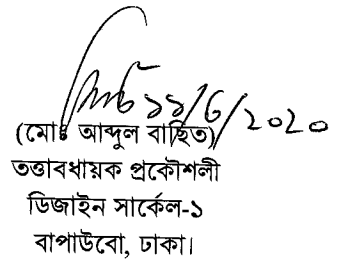 ১১/৬/২০২০
(মোঃ আব্দুল বাছিত)
তত্তাবধায়ক প্রকৌশলী
ডিজাইন সার্কেল-১
বাপাউবো, ঢাকা।